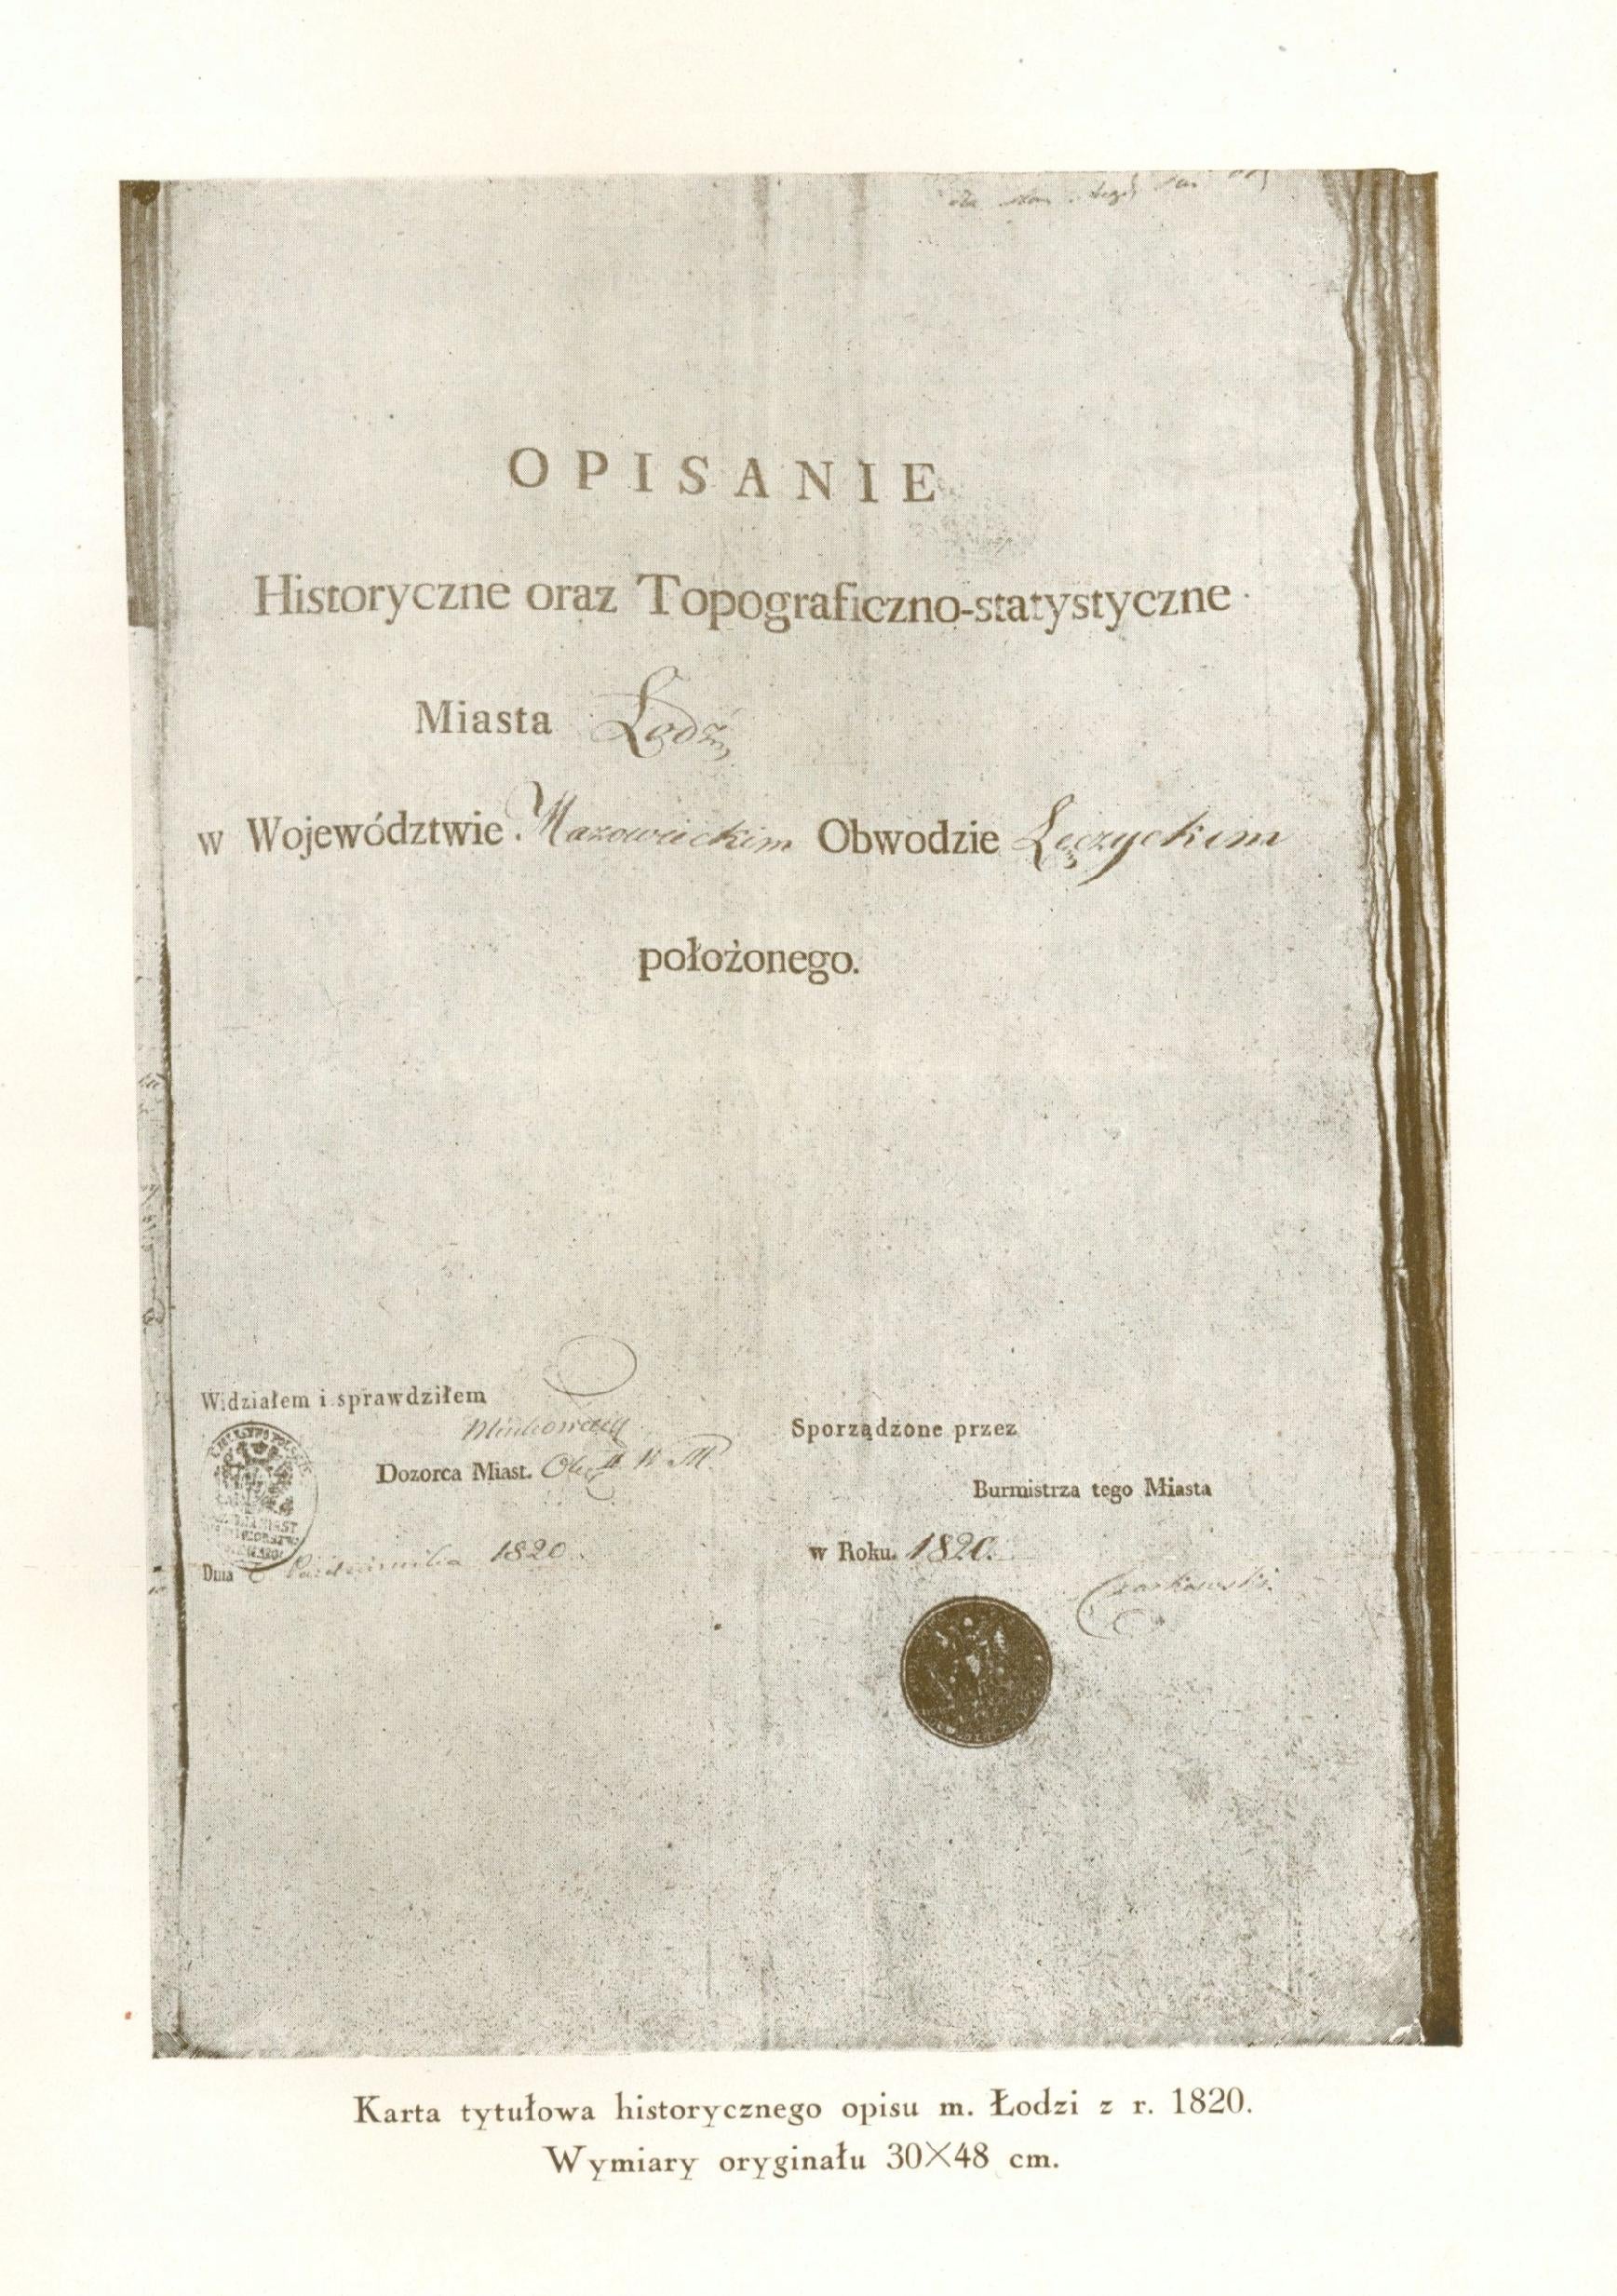 OPISANIE
Historyczne oraz Topograficzno-statystyczne
Miasta Łodzi
w Województwie Mazowieckim Obwodzie Łęczyckim
położonego.
Widziałem i sprawdziłem
Dozorca Miast.
Dnia Października 1820
Sporządzone przez
Burmistrza tego Miasta
w Roku. 1820.
Czarkowski
Karta tytułowa historycznego opisu m. Łodzi z r. 1820.
Wymiary oryginału 30×48 cm.